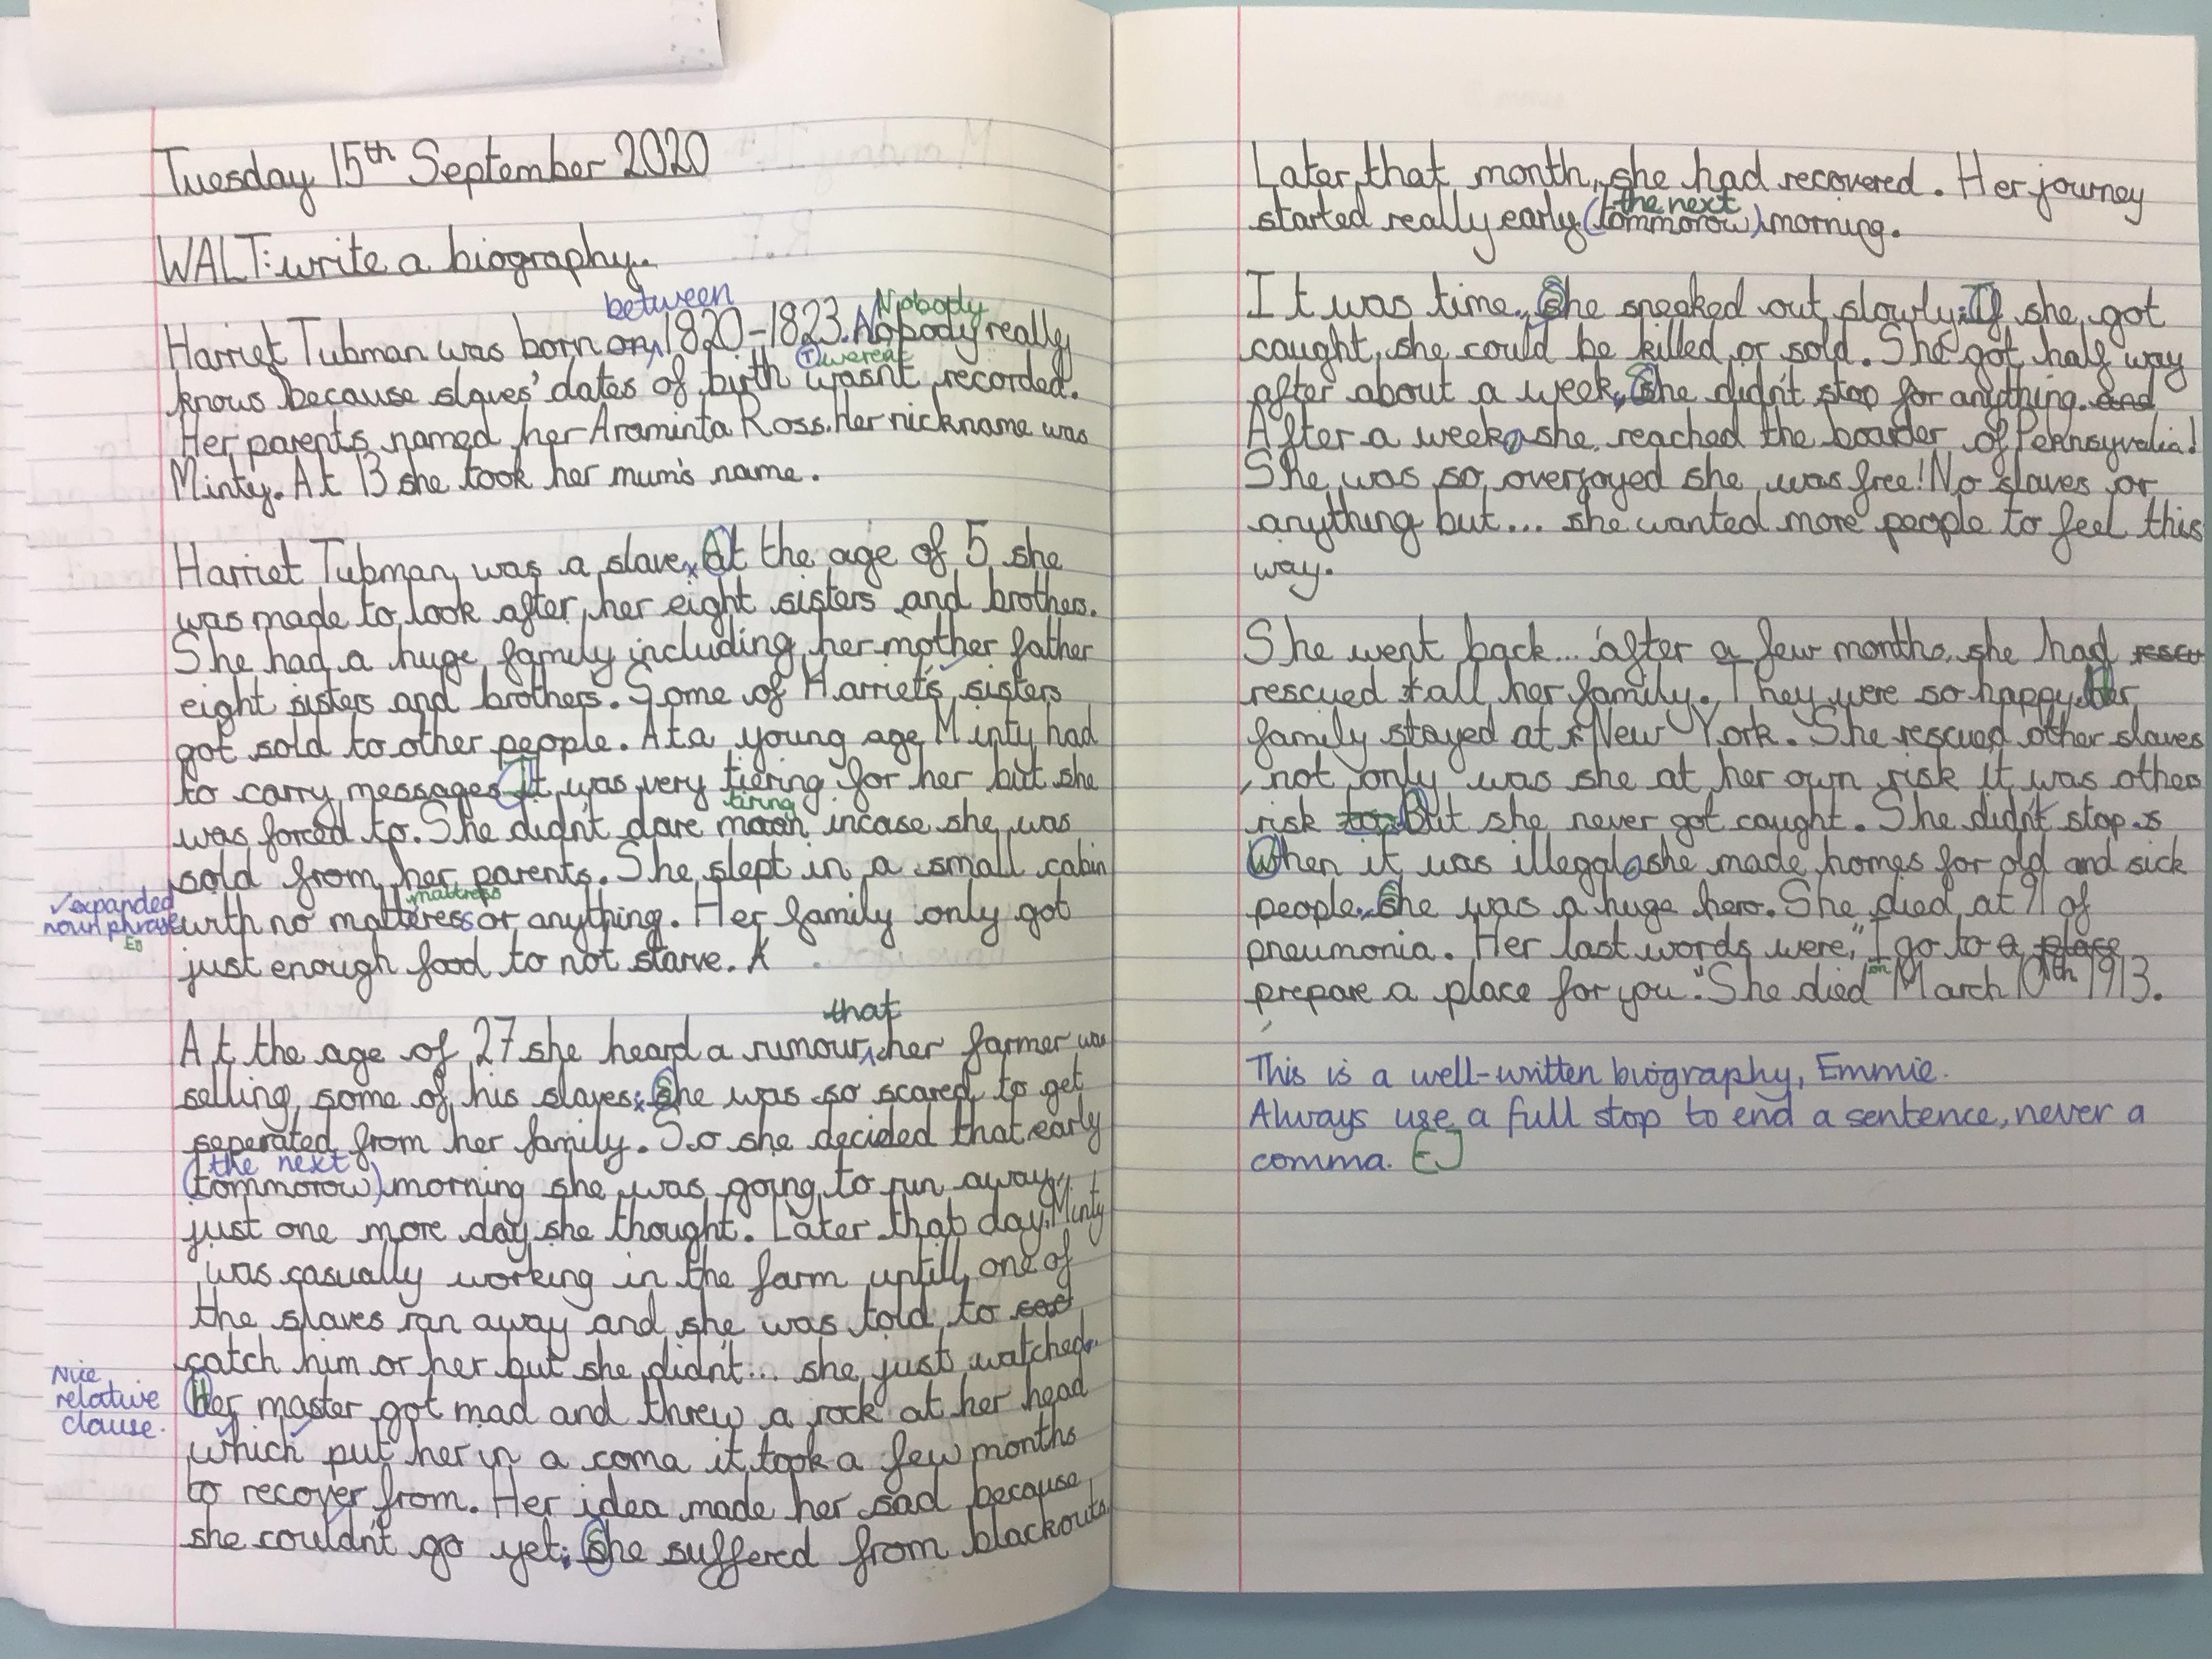 Tuesday 15th September 2020
WALT: write a biography.
between Nobody
Harriet Tubman was born on 1820-1823. Nobody really
weren't
knows because slaves' dates of birth wasn't recorded.
Her parents named her Araminta Ross. Her nickname was
Minty. At 13 she took her mum's name.
Harriet Tubman was a slave. At the age of 5 she
was made to look after her eight sisters and brothers.
She had a huge family including her mother father
eight sisters and brothers. Some of Harriet's sisters
got sold to other people. At a young age Minty had
to carry messages. It was very tiering for her but she
tiring
was forced to. She didn't dare moan incase she was
sold from her parents. She slept in a small cabin
mattress
✓expanded noun phrase EJ
with no matteress or anything. Her family only got
just enough food to not starve. A
that
At the age of 27 she heard a rumour, her farmer was
selling some of his slaves. She was so scared to get
seperated from her family. So she decided that early
the next
(tommorow) morning she was going to run away,
just one more day she thought. Later that day, Minty
was casually working in the farm untill one of
the slaves ran away and she was told to
catch him or her but she didn't... she just watched.
Nice relative clause.
Her master got mad and threw a rock at her head
which put her in a coma it took a few months
to recover from. Her idea made her sad because
she couldn't go yet. She suffered from blackouts.
Later that month, she had recovered. Her journey
the next
started really early (tommorow) morning.
It was time. She sneaked out slowly. If she got
caught, she could be killed or sold. She got half way
after about a week. She didn't stop for anything. and
After a week, she reached the boarder of Pennsyvalia!
She was so overjoyed she was free! No slaves or
anything but... she wanted more people to feel this
way.
She went back... after a few months, she had rescu
rescued all her family. They were so happy. Her
family stayed at New York. She rescued other slaves
, not only was she at her own risk it was others
risk too. But she never got caught. She didn't stop.
When it was illegal, she made homes for old and sick
people. She was a huge hero. She died at 91 of
pneumonia. Her last words were, "I go to a place
on
prepare a place for you." She died March 10th 1913.
This is a well-written biography, Emmie.
Always use a full stop to end a sentence, never a
comma. EJ